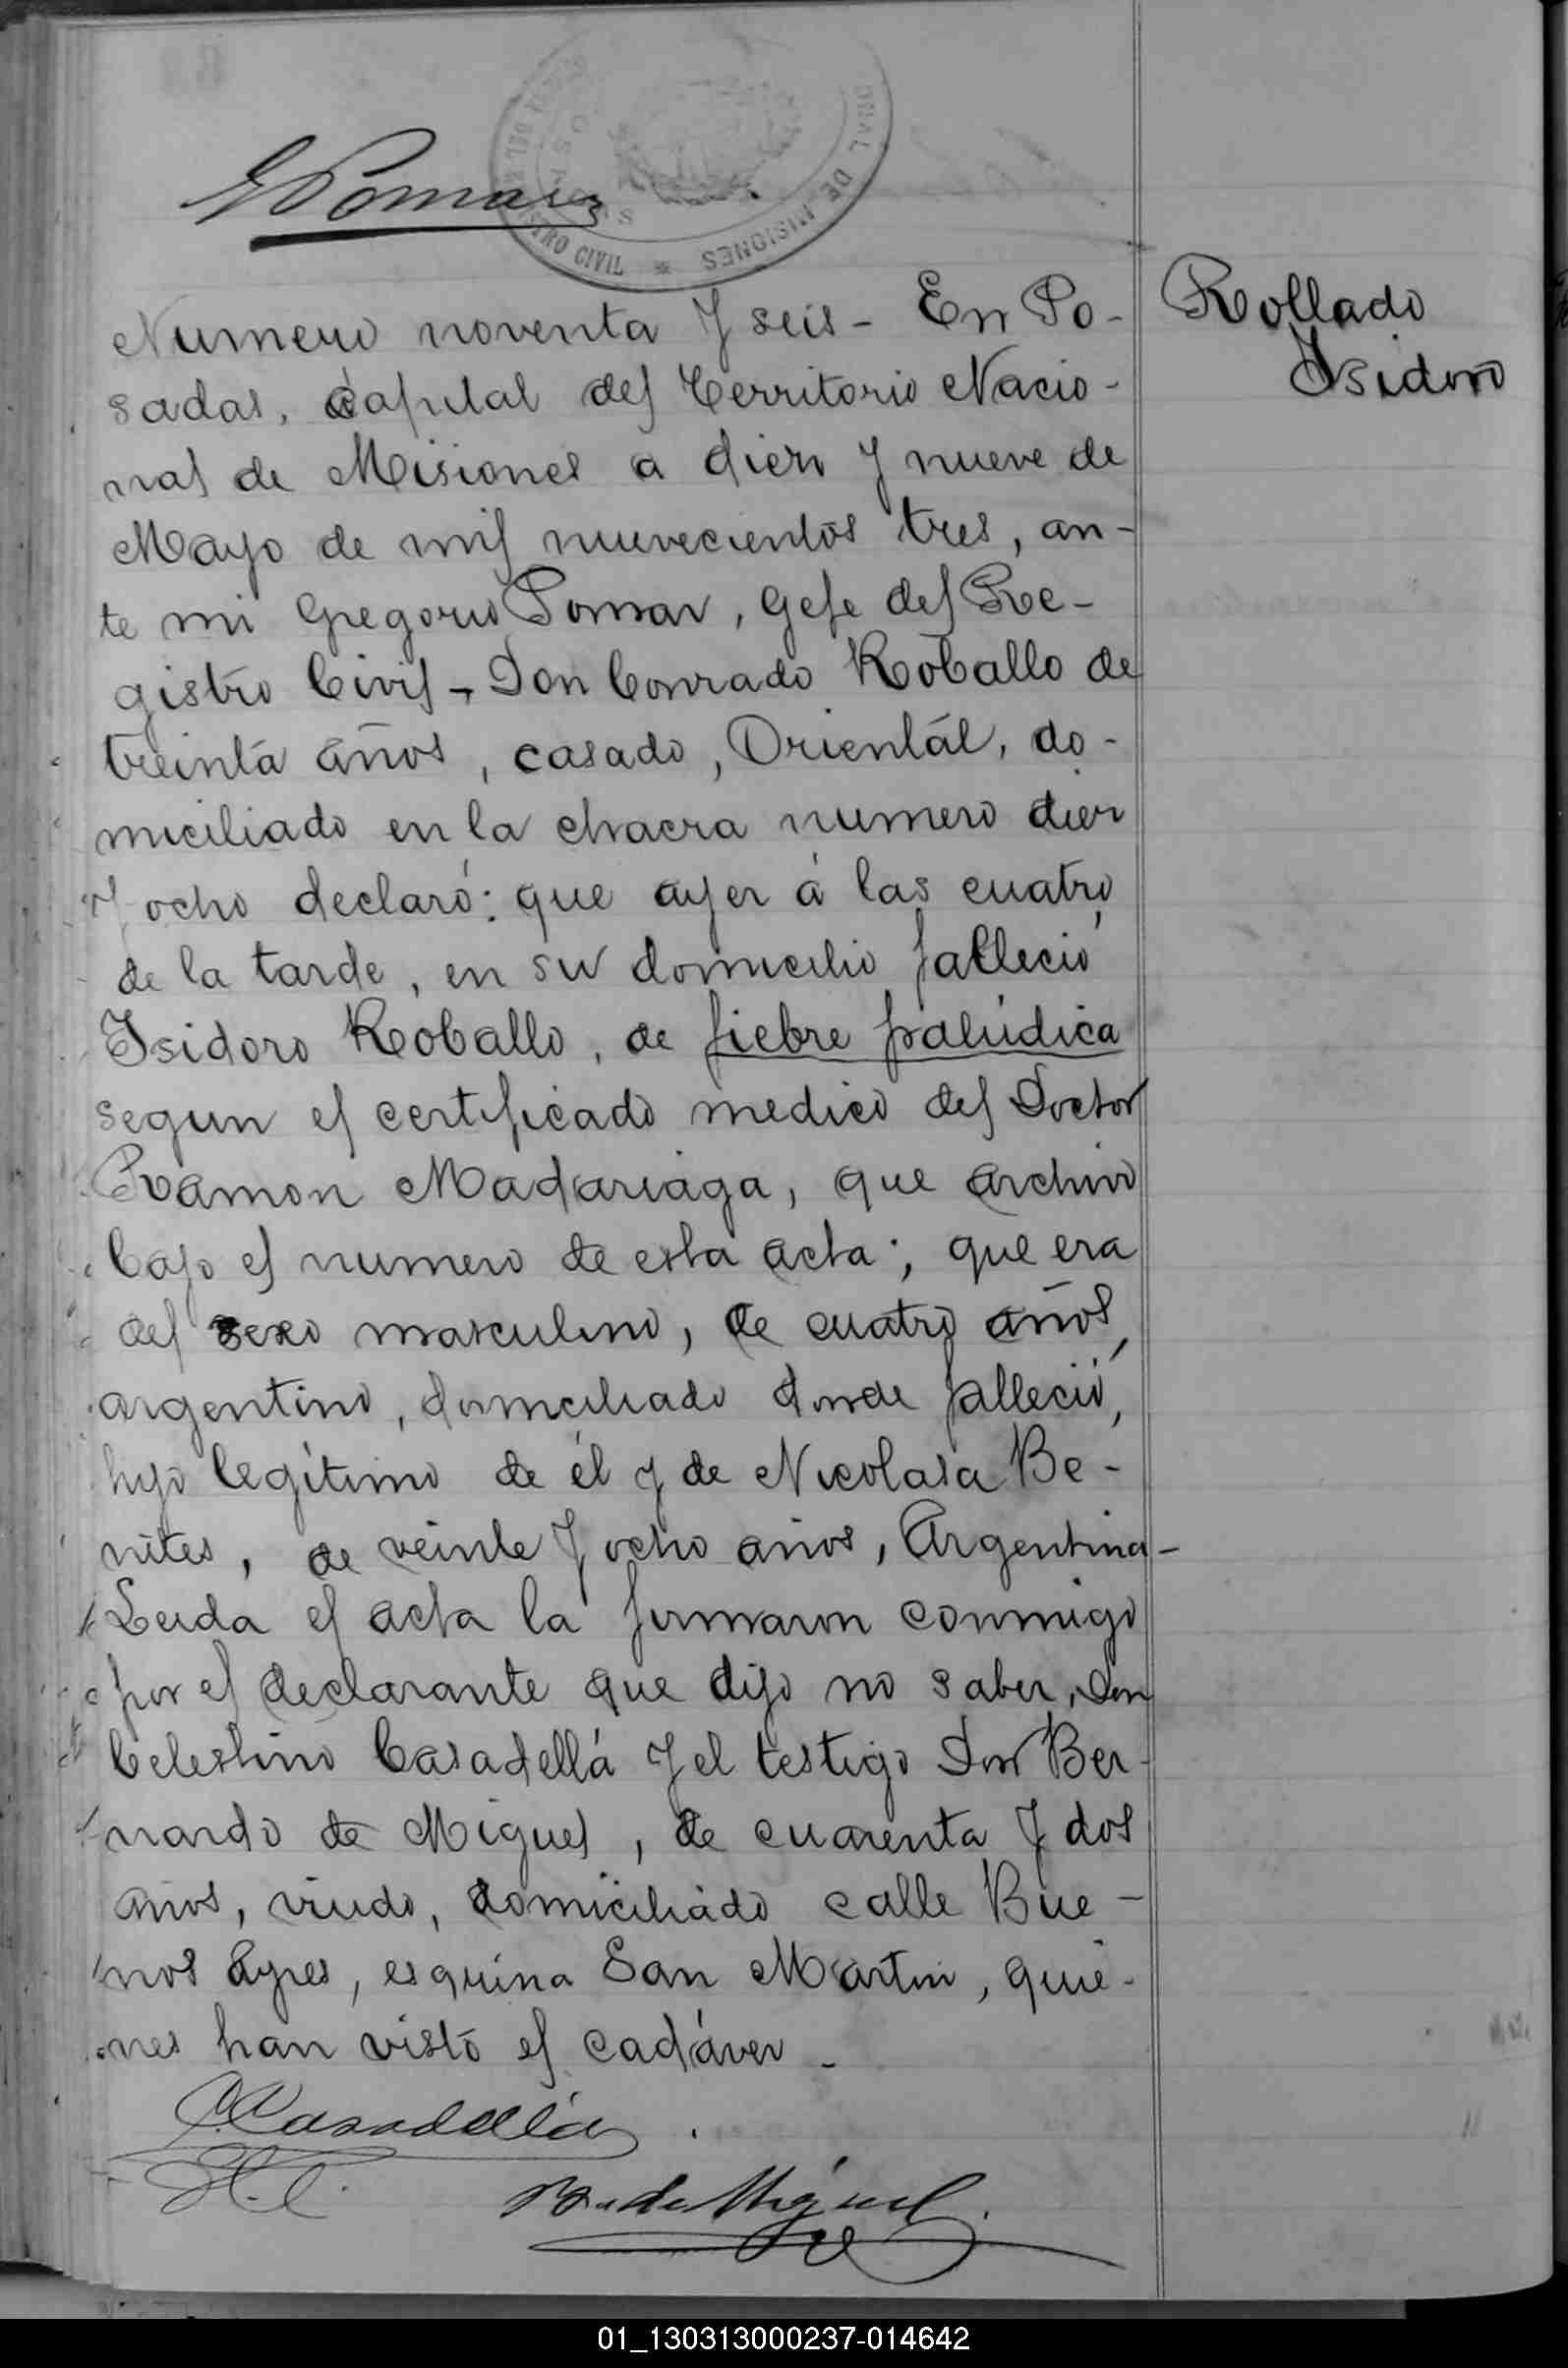 GPomar
DEL REGISTRO CIVIL * NACIONAL DE MISIONES
POSADAS
Numero noventa y seis - En Po-
sadas, capital del Territorio Nacio-
nal de Misiones a diez y nueve de
Mayo de mil nuevecientos tres, an-
te mi Gregorio Pomar, Gefe del Re-
gistro Civil - Don Conrado Roballo de
treinta años, casado, Orientál, do-
miciliado en la chacra numero diez
y ocho declaró: que ayer á las cuatro
de la tarde, en su domicilio falleció
Isidoro Roballo, de fiebre palúdica
segun el certificado medico del Doctor
Ramon Madariaga, que archivo
bajo el numero de esta acta; que era
del sexo masculino, de cuatro años,
argentino, domiciliado donde falleció,
hijo legítimo de él y de Nicolasa Be-
nites, de veinte y ocho años, Argentina-
Leida el acta la firmaron conmigo
por el declarante que dijo no saber, Don
Celestino Casadellá y el testigo Don Ber-
nardo de Miguel, de cuarenta y dos
años, viudo, domiciliado calle Bue-
nos Ayres, esquina San Martin, quie-
nes han visto el cadáver -
Rollado
Isidoro
C. Casadellá
B. de Miguel
01_130313000237-014642